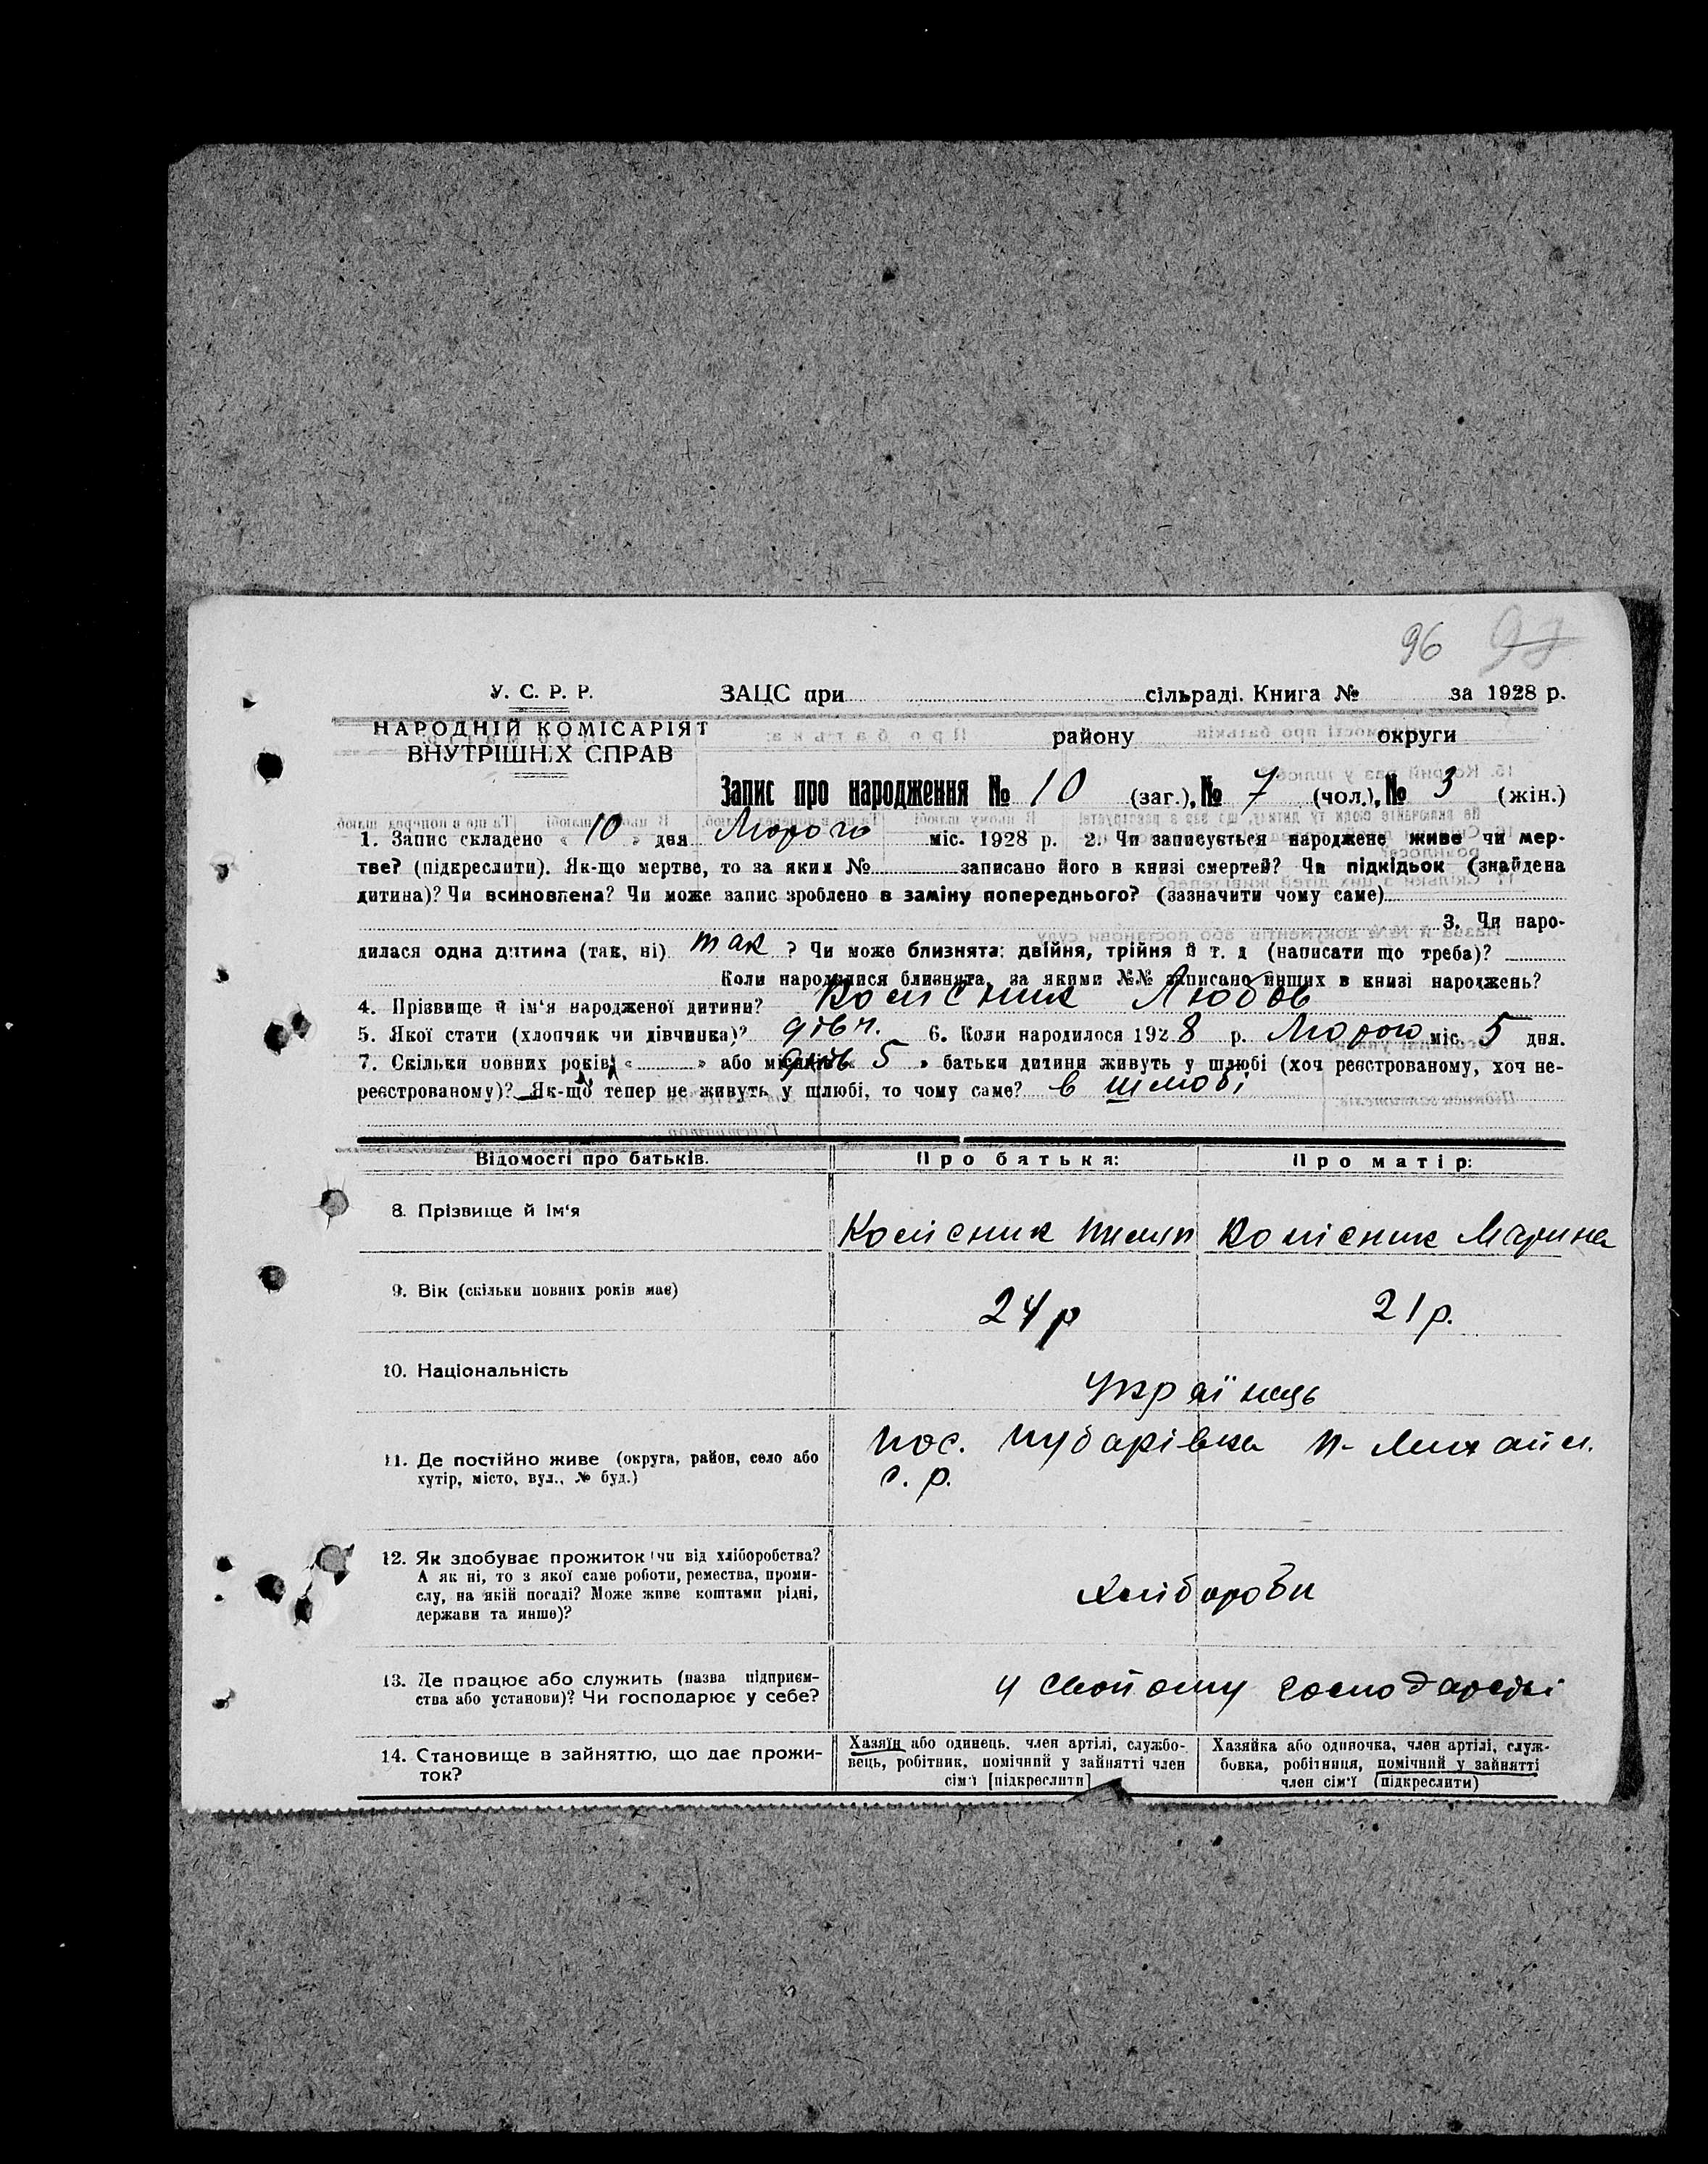 96 97
У. С. Р. Р. ЗАЦС при сільраді. Книга № за 1928 р.
НАРОДНІЙ КОМІСАРІЯТ
ВНУТРІШНІХ СПРАВ
району округи
Запис про народження № 10 (заг.), № 7 (чол.), № 3 (жін.)
1. Запис складено « 10 » дня Лютого міс. 1928 р. 2. Чи записується народжене живе чи мер-
тве? (підкреслити). Як-що мертве, то за яким № записано його в книзі смертей? Чи підкідьок (знайдена
дитина)? Чи всиновлена? Чи може запис зроблено в заміну попереднього? (зазначити чому саме)
3. Чи наро-
дилася одна дитина (так, ні) так ? Чи може близнята: двійня, трійня й т. д (написати що треба)?
Коли народилися близнята, за якими №№ записано инших в книзі народжень?
4. Прізвище й ім'я народженої дитини? Колісник Любов
5. Якої стати (хлопчик чи дівчинка)? дівч. 6. Коли народилося 1928 р. Лютого міс. 5 дня.
7. Скільки повних років « » або місяців « 5 » батьки дитини живуть у шлюбі (хоч реєстрованому, хоч не-
реєстрованому)? Як-що тепер не живуть у шлюбі, то чому саме? в шлюбі
Відомості про батьків. Про батька: Про матір:
8. Прізвище й ім'я Колісник Колісник Марина
9. Вік (скільки повних років має) 24 р 21 р.
10. Національність Українць
11. Де постійно живе (округа, район, село або
хутір, місто, вул., № буд.)
пос. П-Михайл.
с. р.
12. Як здобуває прожиток чи від хліборобства?
А як ні, то з якої саме роботи, ремества, проми-
слу, на якій посаді? Може живе коштами рідні,
держави та инше)?
Хлібороби
13. Де працює або служить (назва підприєм-
ства або установи)? Чи господарює у себе?
у свойому господарстві
14. Становище в зайняттю, що дає прожи-
ток?
Хазяїн або одинець, член артілі, службо-
вець, робітник, помічний у зайнятті член
сім'ї [підкреслити]
Хазяйка або одиночка, член артілі, служ-
бовка, робітниця, помічний у зайнятті
член сім'ї (підкреслити)